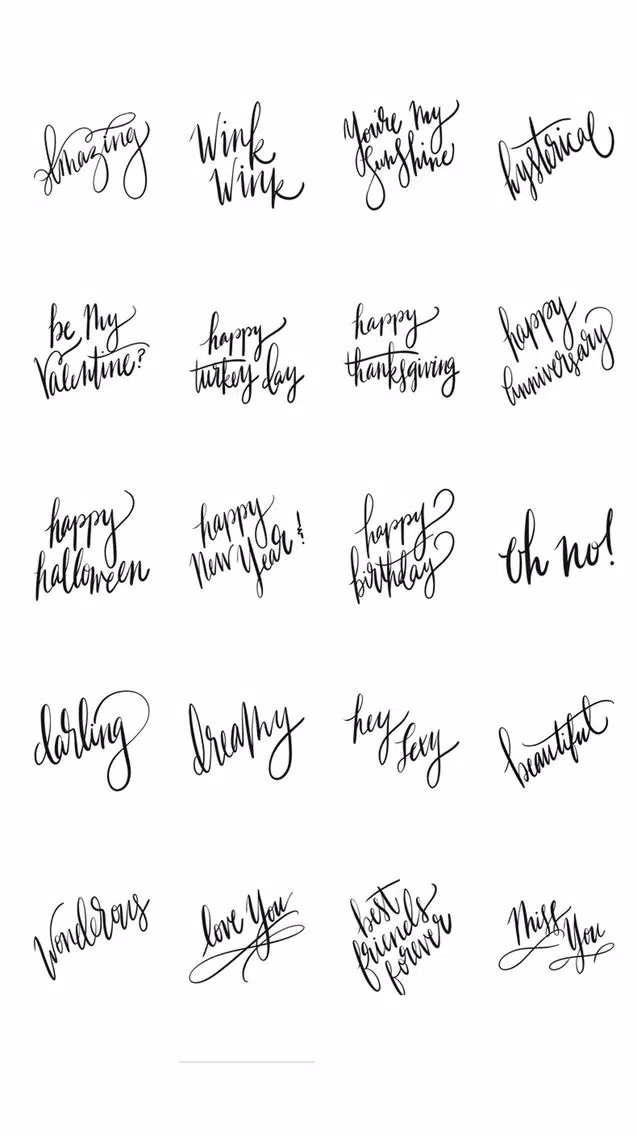 Amazing
Wink
Wink
You're My
Sunshine
hysterical
be My
Valentine?
happy
turkey day
happy
thanksgiving
happy
Anniversary
happy
halloween
happy
New Year!
happy
birthday
Oh no!
darling
dreamy
hey
Sexy
beautiful
Wonderous
love You
best
friends
forever
Miss
You